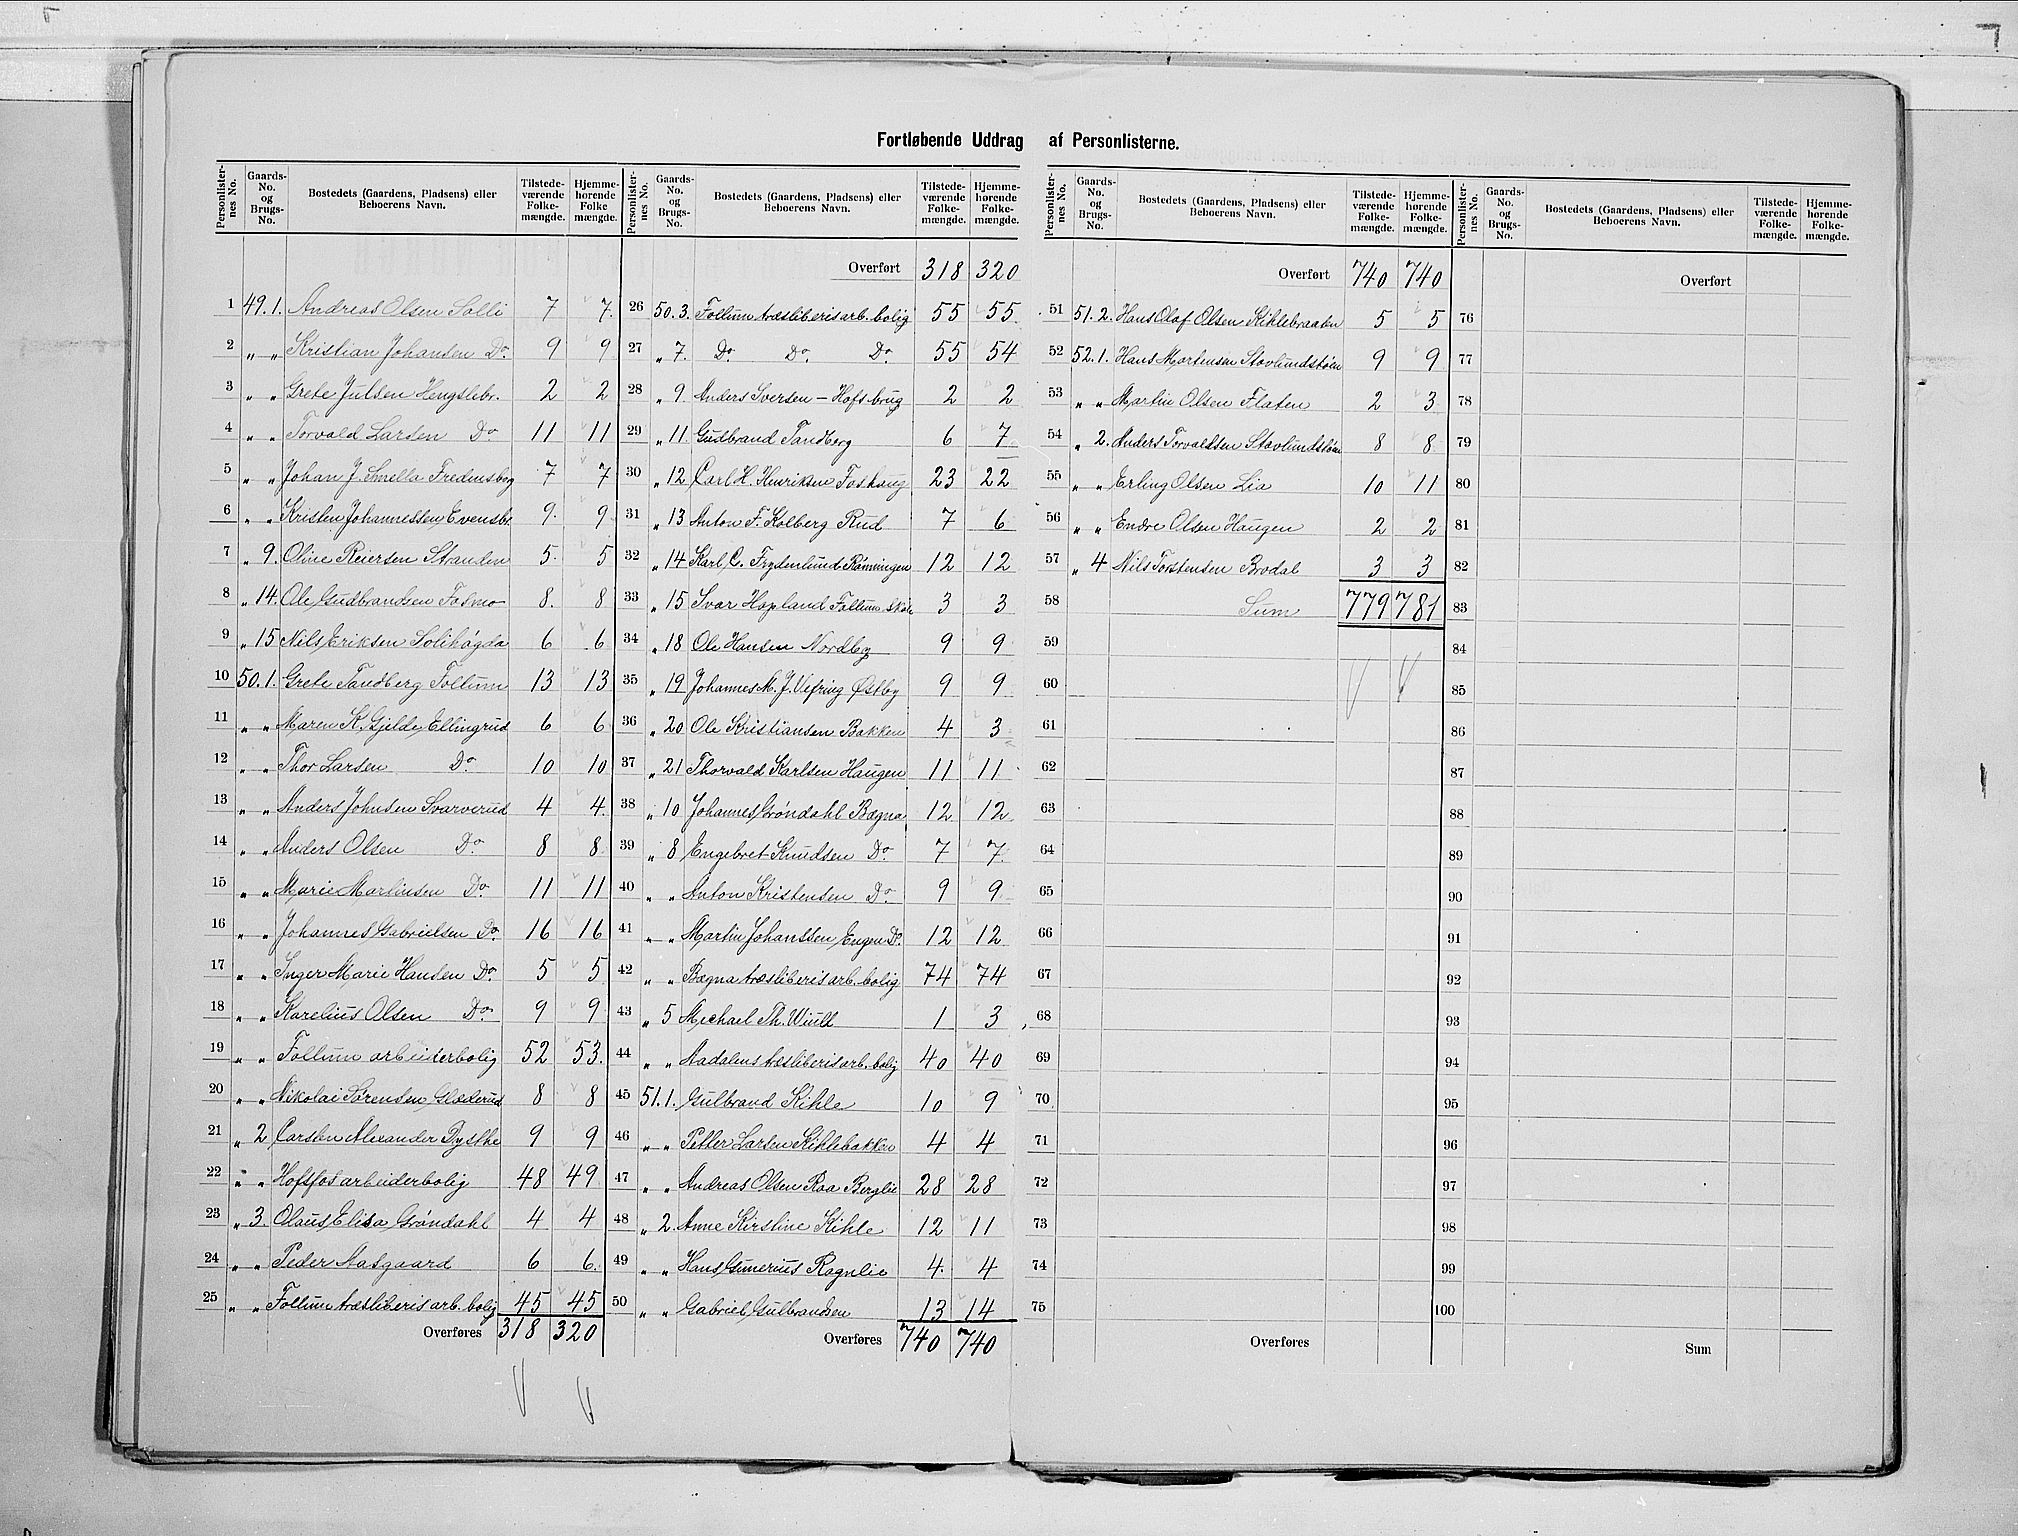 Fortløbende Uddrag af Personlisterne.
Personlisternes No. Gaards-No. og Brugs-No. Bostedets (Gaardens, Pladsens) eller Beboerens Navn. Tilstedeværende Folkemængde. Hjemmehørende Folkemængde.
1 49.1. Andreas Olsen Solli 7 7.
2 „ „ Kristian Johansen Do. 9 9
3 „ „ Grete Julsen Hengslebr. 2 2
4 „ „ Torvald Larsen Do 11 11
5 „ „ Johan J. Smella Fredensborg 7 7
6 „ „ Kristen Johannessen Evensbr 9. 9
7 „ 9. Oline Reiersen Stranden 5. 5
8 „ 14. Ole Gudbrandsen Fosmo 8. 8
9 „ 15 Nils Eriksen Solihøgda 6 6
10 50.1. Grete Tandberg Follum 13 13
11 „ „ Maren K. Gjelde Ellingrud 6 6
12 „ „ Thor Larsen Do. 10 10
13 „ „ Anders Johnsen Svarverud 4 4.
14 „ „ Anders Olsen Do. 8 8
15 „ „ Marie Martinsen Do. 11 11
16 „ „ Johannes Gabrielsen Do. 16 16
17 „ „ Inger Marie Hansen Do. 5 5
18 „ „ Karelius Olsen Do. 9 9
19 „ „ Follum arbeiderbolig 52 53.
20 „ „ Nikolai Sørensen Glæserud 8 8
21 „ 2 Carsten Alexander Dysthe 9 9
22 „ „ Hofsfos arbeiderbolig 48 49
23 „ 3. Olaus Elisa Grøndahl 4 4
24 „ „ Peder Aasgaard 6 6.
25 „ „ Follum træsliberis arb. bolig 45 45
Overføres 318 320
Personlisternes No. Gaards-No. og Brugs-No. Bostedets (Gaardens, Pladsens) eller Beboerens Navn. Tilstedeværende Folkemængde. Hjemmehørende Folkemængde.
Overført 318 320
26 50.3. Follum træsliberis arb. bolig 55 55.
27 „ 7. Do Do. Do 55 54
28 „ 9 Anders Iversen - Hofsbrug 2 2
29 „ 11 Gudbrand Tandberg 6 7
30 „ 12 Carl H. Henriksen Foshaug 23 22
31 „ 13 Anton F. Kolberg Rud 7 6
32 „ 14 Karl C. Frydenlund Rønningen 12 12
33 „ 15 Ivar Hopland Follum skole 3 3
34 „ 18 Ole Hansen Nordby 9 9
35 „ 19 Johannes M. J. Vefring Østby 9 9
36 „ 20 Ole Kristiansen Bakken 4 3
37 „ 21 Thorvald Karlsen Haugen 11 11
38 „ 10 Johannes Grøndahl Bægna 12 12
39 „ 8 Engebret Knudsen Do. 7 7.
40 „ „ Anton Kristensen Do. 9 9.
41 „ „ Martin Johanssen Engen Do. 12 12
42 „ „ Bægna træsliberis arb. bolig 74 74
43 „ 5 Michael Th. Wiull 1 3
44 „ „ Aadalens træsliberis arb. bolig 40 40
45 51.1. Gulbrand Kihle 10 9
46 „ „ Petter Larsen Kihlebakken 4 4
47 „ „ Andreas Olsen Roa Berglie 28 28
48 „ 2. Anne Kirstine Kihle 12 11
49 „ „ Hans Gunerius Rognlie 4. 4
50 „ „ Gabriel Gulbrandsen 13 14
Overføres 740 740
Personlisternes No. Gaards-No. og Brugs-No. Bostedets (Gaardens, Pladsens) eller Beboerens Navn. Tilstedeværende Folkemængde. Hjemmehørende Folkemængde.
Overført 740 740
51 51.2. Hans Olaf Olsen Kihlebraaten 5 5
52 52.1. Hans Mortensen Stovlundstøen 9 9
53 „ „ Martin Olsen Flaten 2 3
54 „ 2. Anders Torvaldsen Stovlundstøen 8 8
55 „ „ Erling Olsen Lia 10 11
56 „ „ Endre Olsen Haugen 2 2
57 „ 4 Nils Torstensen Brodal 3 3
58 Sum 779 781
59
60
61
62
63
64
65
66
67
68
69
70
71
72
73
74
75
Overføres
Personlisternes No. Gaards-No. og Brugs-No. Bostedets (Gaardens, Pladsens) eller Beboerens Navn. Tilstedeværende Folkemængde. Hjemmehørende Folkemængde.
Overført
76
77
78
79
80
81
82
83
84
85
86
87
88
89
90
91
92
93
94
95
96
97
98
99
100
Sum